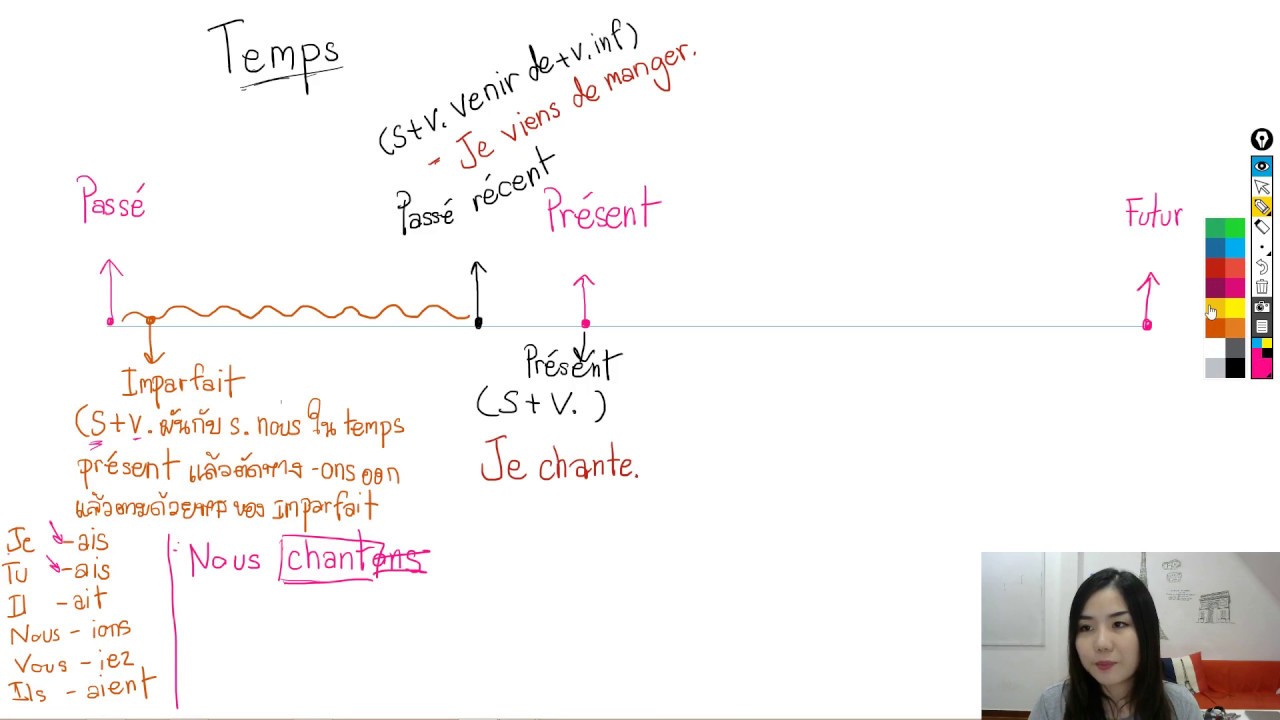 Temps
(S+V. venir de+V.inf)
- Je viens de manger.
Passé
Passé récent
Présent
Futur
Imparfait
(S+V. ผันกับ s. nous ใน temps
présent แล้วตัดหาง -ons ออก
แล้วตามด้วยหาง ของ Imparfait
Présent
(S+V.)
Je chante.
Je -ais
Tu -ais
Il -ait
Nous - ions
Vous - iez
Ils - aient
Nous chantons